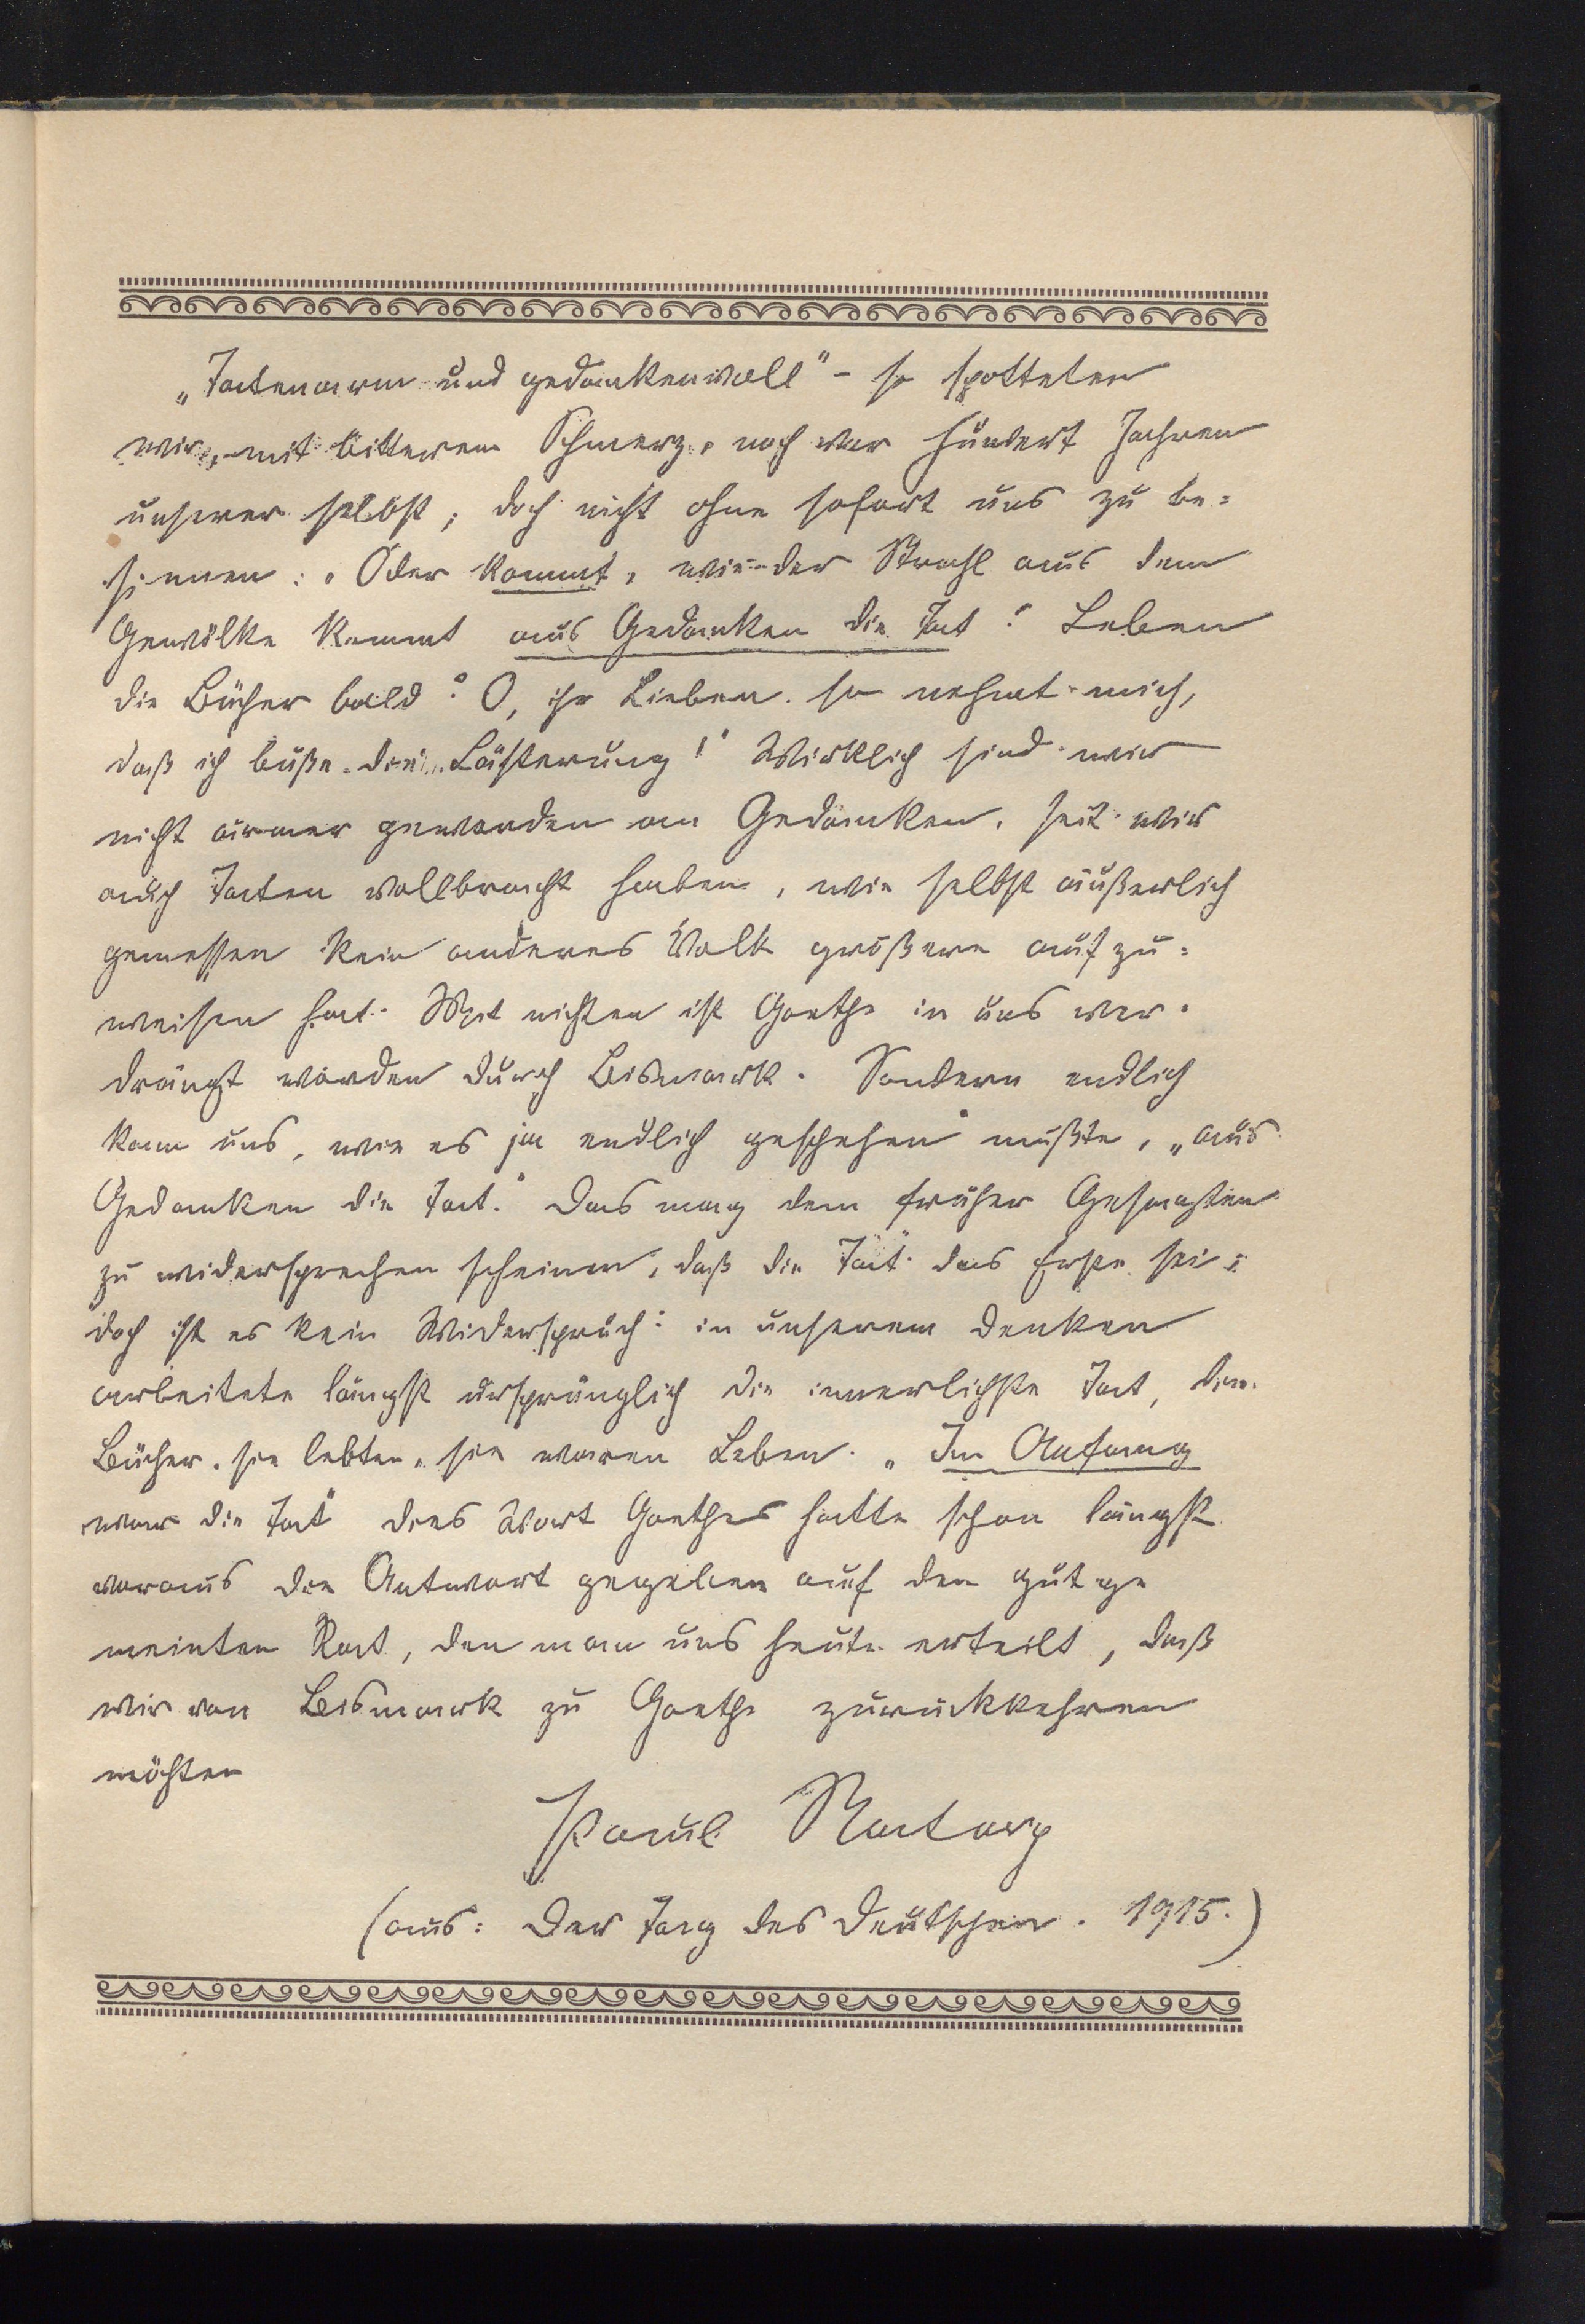 „Tatenarm und gedankenvoll" – so spotteten
wir, mit bitterem Schmerz, noch vor hundert Jahren
unserer selbst; doch nicht ohne sofort uns zu be=
sinnen: „Oder kommt, wie der Strahl aus dem
Gewölke kommt aus Gedanken die Tat? Leben
die Bücher bald? O, ihr Lieben. so nehmt mich,
daß ich büße die Lästerung!" Wirklich sind wir
nicht ärmer geworden an Gedanken, seit wir
auch Taten vollbracht haben, wie selbst äußerlich
gemessen kein anderes Volk größere aufzu=
weisen hat. Mit nichten ist Goethe in uns ver=
drängt worden durch Bismark. Sondern endlich
kam uns, wie es ja endlich geschehen mußte, „aus
Gedanken die Tat." Das mag dem früher Gesagten
zu widersprechen scheinen, daß die „Tat" das Erste sei;
doch ist es kein Widerspruch: in unserem Denken
arbeitete längst ursprünglich die innerlichste Tat, die
Bücher, sie lebten, sie waren Leben. „Im Anfang
war die Tat" dies Wort Goethes hatte schon längst
voraus die Antwort gegeben auf den gut ge
meinten Rat, den man uns heute erteilt, daß
wir von Bismark zu Goethe zurückkehren
möchten
Paul Natorp
(aus: Der Tag des Deutschen. 1915.)